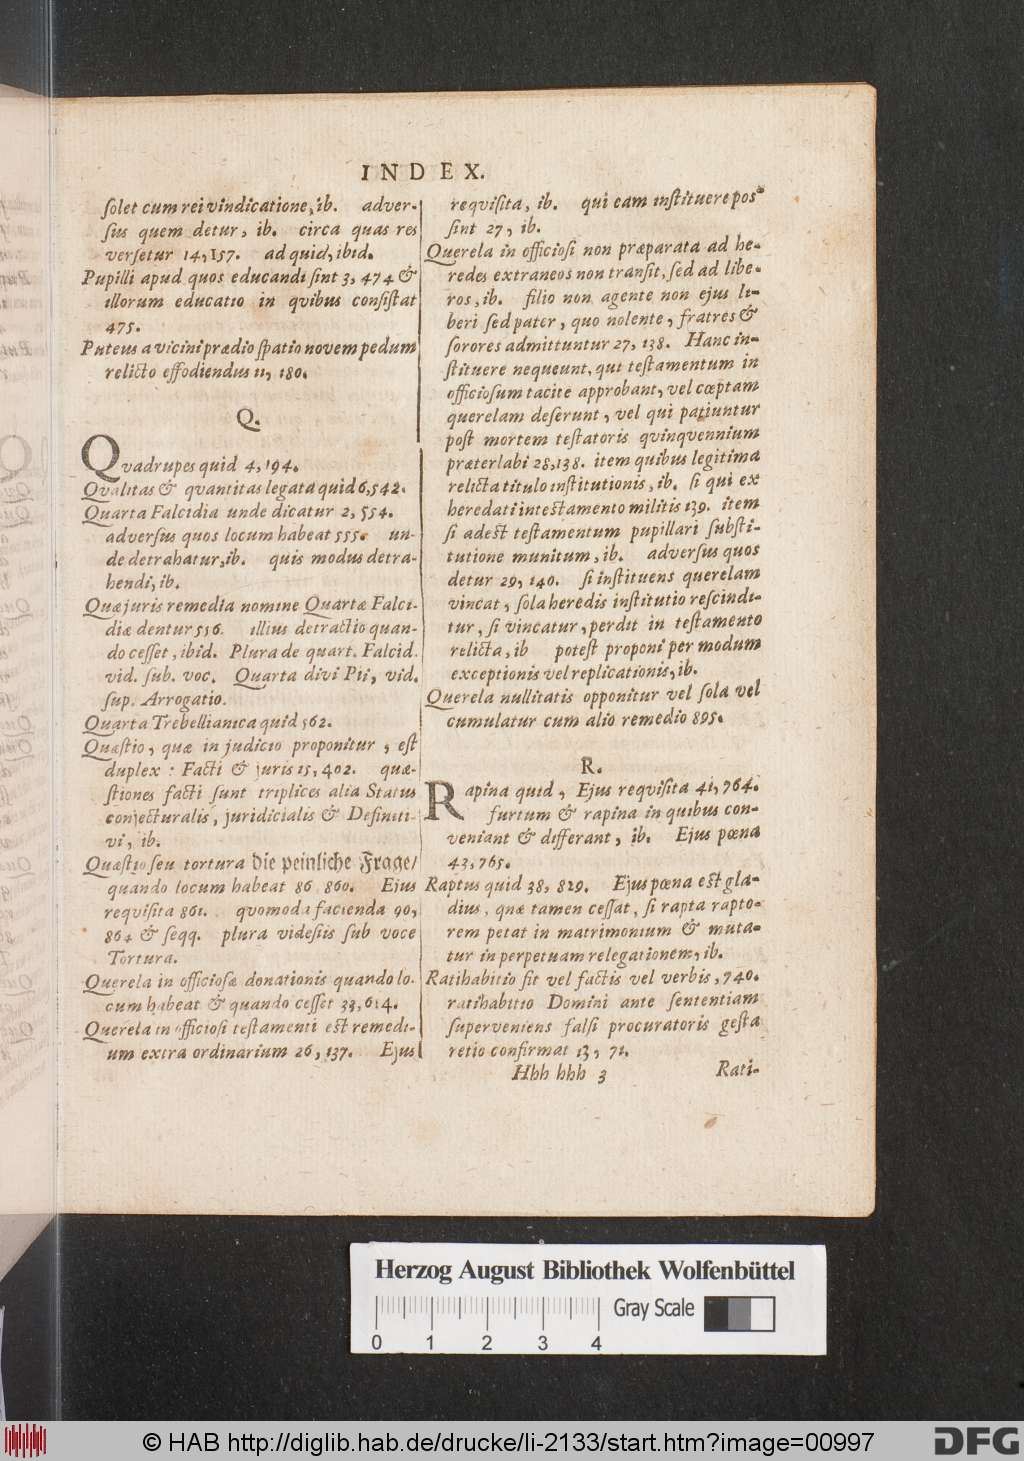 INDEX.
solet cum rei vindicatione, ib. adver-
sus quem detur, ib. circa quas res
versetur 14, 157. ad quid, ibid.
Pupilli apud quos educandi sint 3, 474 &
illorum educatio in qvibus consistat
475.
Puteus a vicini prædio spatio novem pedum
relicto effodiendus 11, 180.
Q.
Qvadrupes quid 4, 194.
Qvalitas & qvantitas legata quid 6, 542.
Quarta Falcidia unde dicatur 2, 554.
adversus quos locum habeat 555. un-
de detrahatur, ib. quis modus detra-
hendi, ib.
Quæ juris remedia nomine Quartæ Falci-
diæ dentur 556. illius detractio quan-
do cesset, ibid. Plura de quart. Falcid.
vid. sub. voc. Quarta divi Pii, vid.
sup. Arrogatio.
Quarta Trebellianica quid 562.
Quæstio, quæ in judicio proponitur, est
duplex: Facti & juris 15, 402. quæ-
stiones facti sunt triplices alia Status
conjecturalis, juridicialis & Definiti-
vi, ib.
Quæstio seu tortura die peinliche Frage/
quando locum habeat 86 860. Ejus
requisita 861. qvomodo facienda 90,
864 & seqq. plura videsiis sub voce
Tortura.
Querela in officiosæ donationis quando lo-
cum habeat & quando cesset 33, 614.
Querela in officiosi testamenti est remedi-
um extra ordinarium 26, 137. Ejus
reqvisita, ib. qui eam instituere pos-
sint 27, ib.
Querela in officiosi non præparata ad he-
redes extraneos non transit, sed ad libe-
ros, ib. filio non agente non ejus li-
beri sed pater, quo nolente, fratres &
sorores admittuntur 27, 138. Hanc in-
stituere nequeunt, qui testamentum in
officiosum tacite approbant, vel cœptam
querelam deserunt, vel qui patiuntur
post mortem testatoris qvinqvennium
præterlabi 28, 138. item quibus legitima
relicta titulo institutionis, ib. si qui ex
heredati in testamento militis 139. item
si adest testamentum pupillari substi-
tutione munitum, ib. adversus quos
detur 29, 140. si instituens querelam
vincat, sola heredis institutio rescindi-
tur, si vincatur, perdit in testamento
relicta, ib potest proponi per modum
exceptionis vel replicationis, ib.
Querela nullitatis opponitur vel sola vel
cumulatur cum alio remedio 895.
R.
Rapina quid, Ejus reqvisita 41, 764.
furtum & rapina in quibus con-
veniant & differant, ib. Ejus pœna
43, 765.
Raptus quid 38, 829. Ejus pœna est gla-
dius, quæ tamen cessat, si rapta rapto-
rem petat in matrimonium & muta-
tur in perpetuam relegationem, ib.
Ratihabitio fit vel factis vel verbis, 740.
ratihabitio Domini ante sententiam
superveniens falsi procuratoris gesta
retio confirmat 13, 71.
Hhh hhh 3 Rati-
Herzog August Bibliothek Wolfenbüttel
Gray Scale
0 1 2 3 4
© HAB http://diglib.hab.de/drucke/li-2133/start.htm?image=00997
DFG